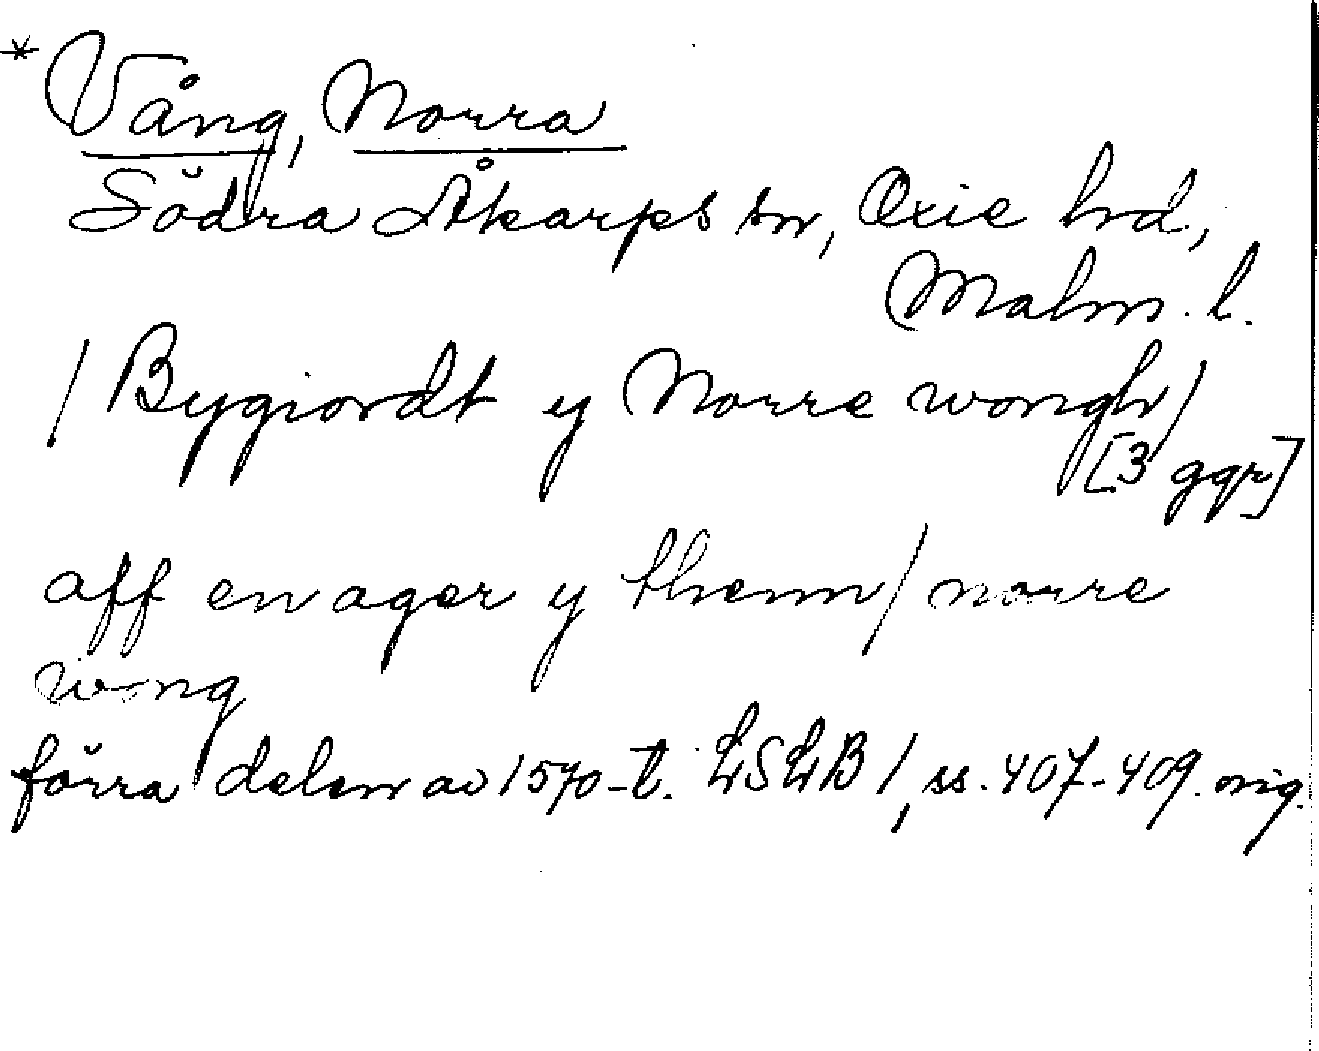 * Vång, Norra
Södra Åkarps sn, Oxie hd,
Malm. l.
/ Bygiordt y Norre wongh /
[3 ggr]
aff en ager y thenn / norre
wong
förra delen av 1570-t. LSLB 1, ss. 407-409. orig.